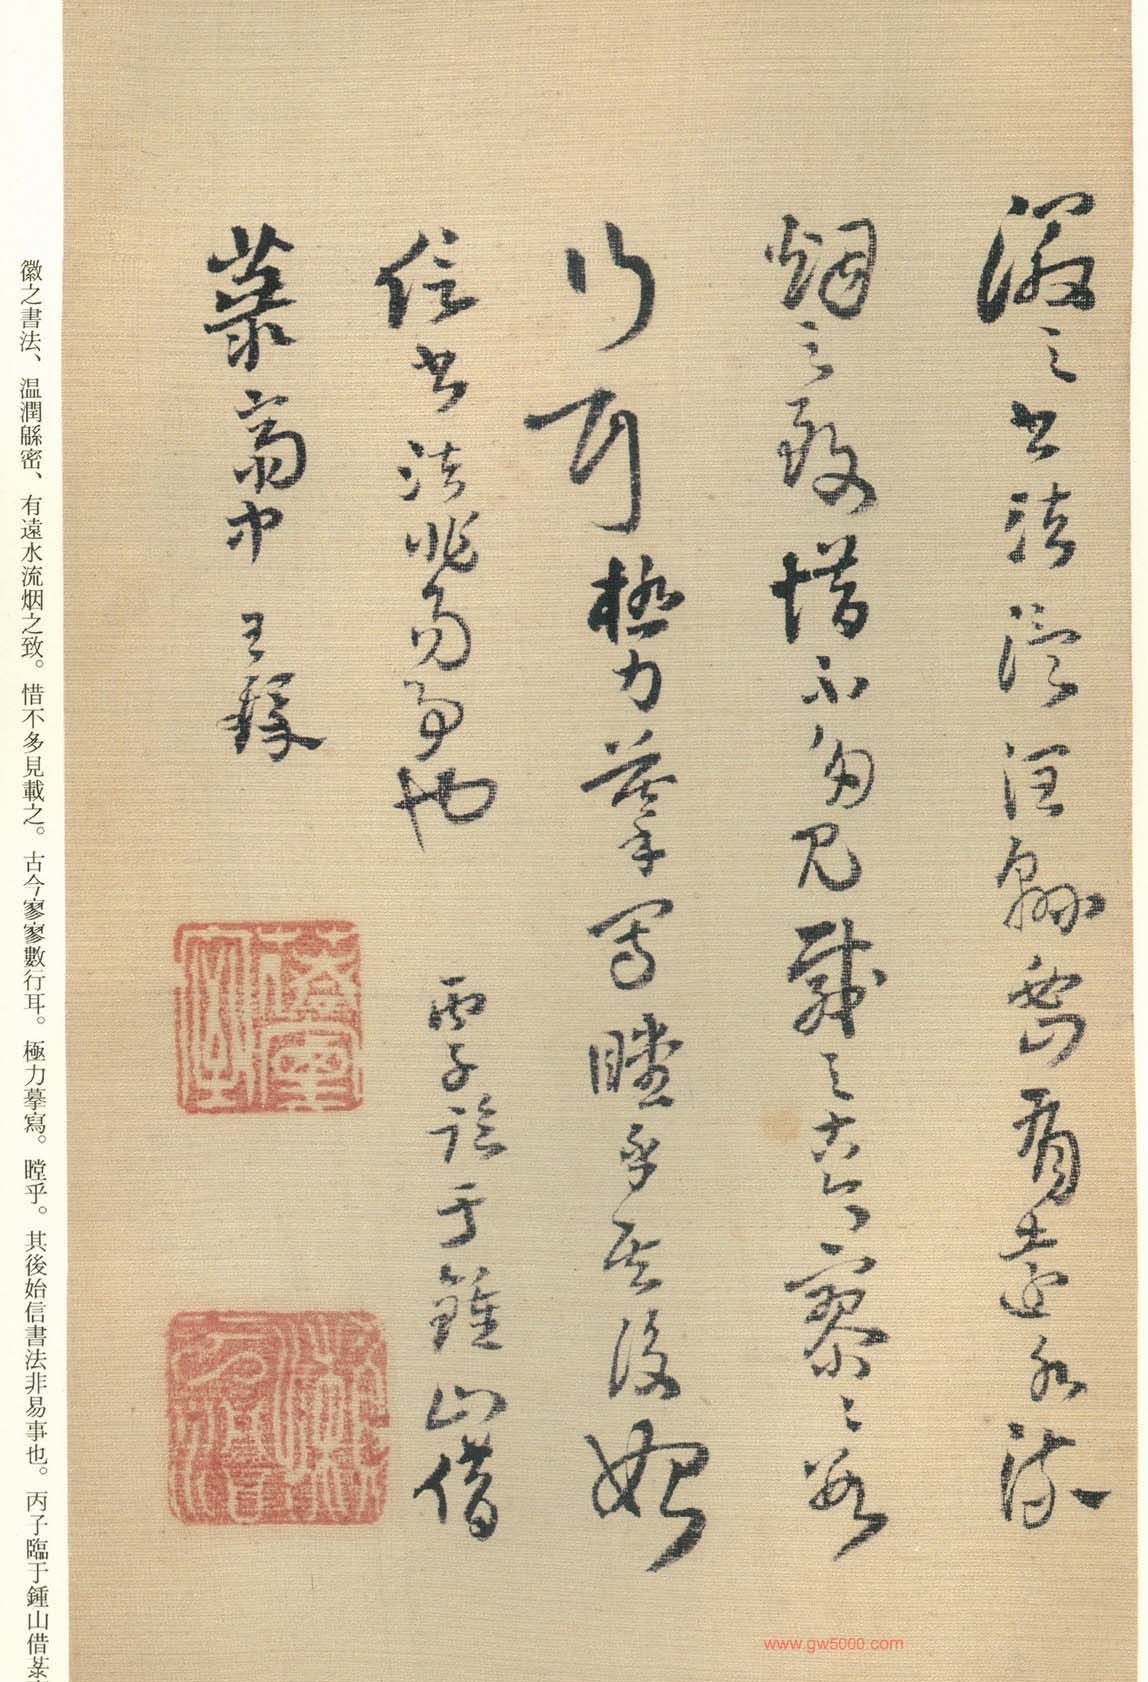 徽之書法温潤緜密有遠水流
烟之致惜不多見載之古今寥〻數
行耳極力摹寫瞠乎其後始
信書法非易事也 丙子臨于鍾山借
菉齋中 王鐸
徽之書法、温潤緜密、有遠水流烟之致。惜不多見載之。古今寥寥數行耳。極力摹寫。瞠乎。其後始信書法非易事也。丙子臨于鍾山借菉
www.gw5000.com